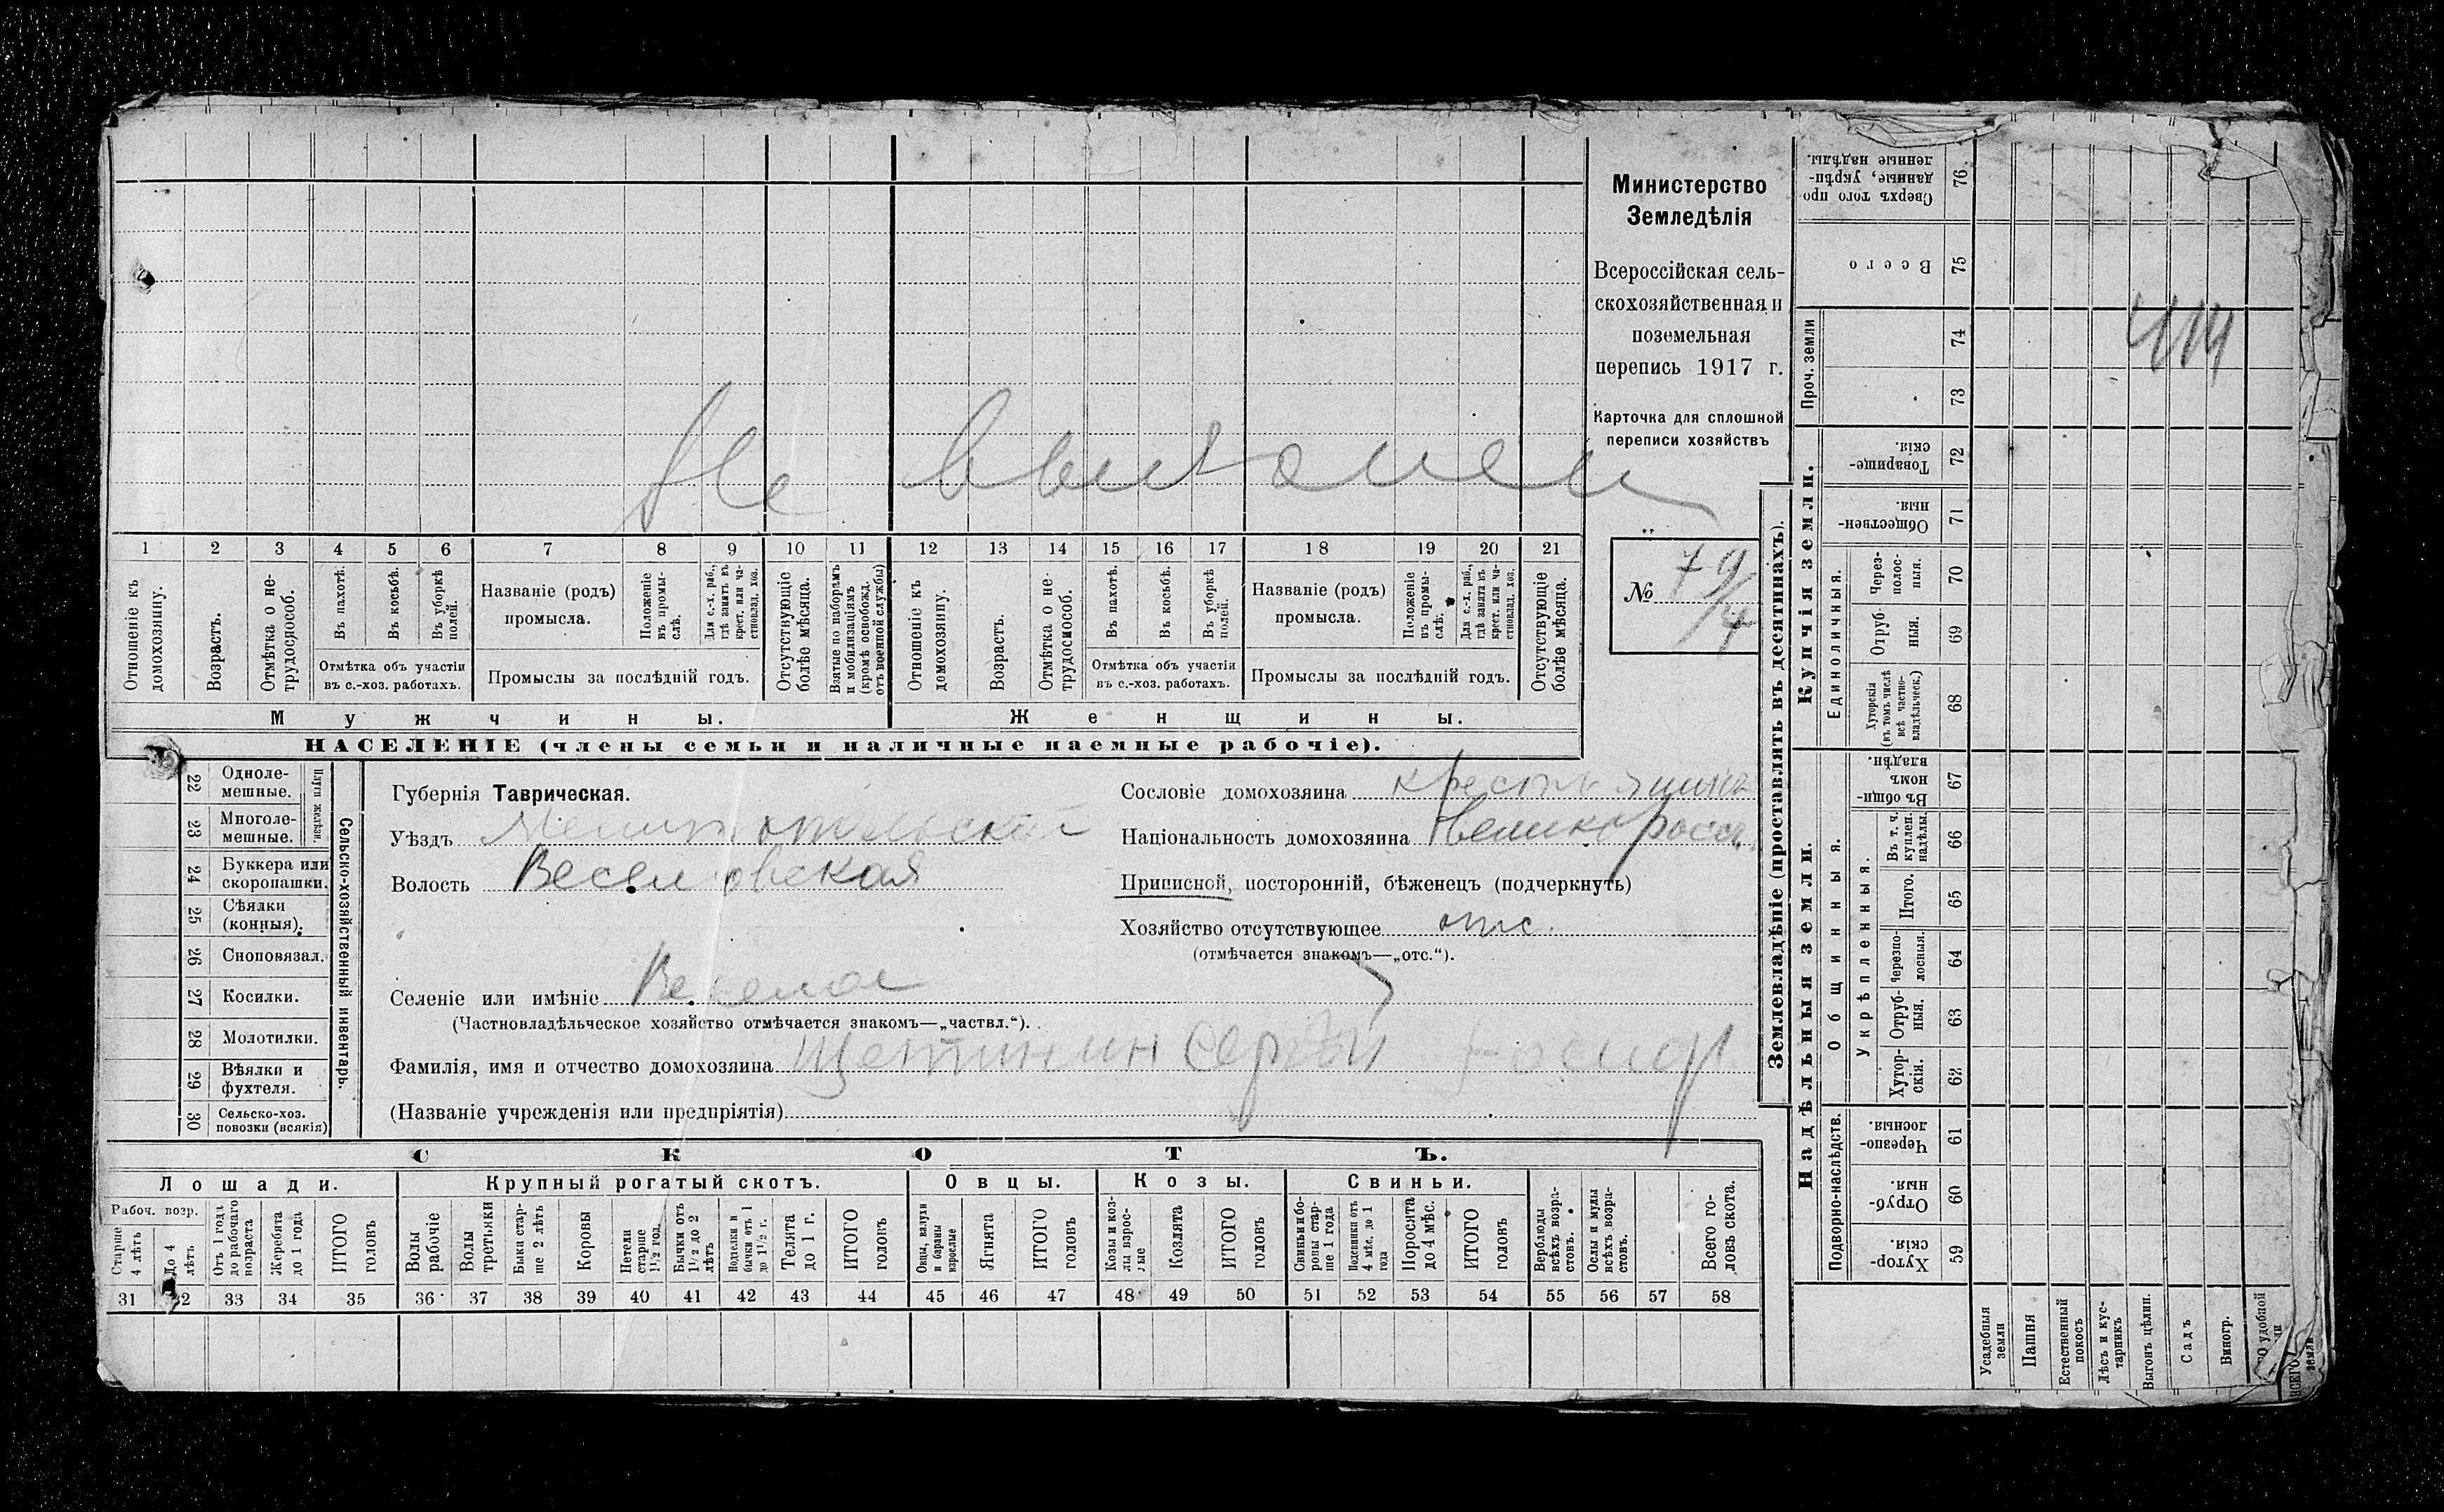 Министерство
Земледѣлія
Всероссійская сель-
скохозяйственная и
поземельная
перепись 1917 г.
Карточка для сплошной
переписи хозяйствъ
№ 79/4
Не
1 2 3 4 5 6 7 8 9 10 11 12 13 14 15 16 17 18 19 20 21
Отношеніе къ домохозяину.
Возрастъ.
Отмѣтка о не-трудоспособ.
Въ пахотѣ.
Въ косьбѣ.
Въ уборкѣ полей.
Отмѣтка объ участіи
въ с.-хоз. работахъ.
Названіе (родъ)
промысла.
Положеніе въ промы-слѣ.
Для с.-х. раб., гдѣ занятъ въ крест. или ча-стновлад. хоз.
Промыслы за послѣдній годъ.
Отсутствующіе болѣе мѣсяца.
Взятые по наборамъ и мобилизаціямъ (кромѣ освобожд. отъ военной службы)
Отношеніе къ домохозяину.
Возрастъ.
Отмѣтка о не-трудоспособ.
Въ пахотѣ.
Въ косьбѣ.
Въ уборкѣ полей.
Отмѣтка объ участіи
въ с.-хоз. работахъ.
Названіе (родъ)
промысла.
Положеніе въ промы-слѣ.
Для с.-х. раб., гдѣ занята въ крест. или ча-стновлад. хоз.
Промыслы за послѣдній годъ.
Отсутствующіе болѣе мѣсяца.
Мужчины.
Женщины.
НАСЕЛЕНІЕ (члены семьи и наличные наемные рабочіе).
22 Одноле-мешные.
23 Многоле-мешные.
Плуги желѣзн.
24 Буккера или скоропашки.
25 Сѣялки (конныя).
26 Сноповязал.
27 Косилки.
28 Молотилки.
29 Вѣялки и фухтеля.
30 Сельско-хоз. повозки (всякія)
Сельско-хозяйственный инвентарь.
Губернія Таврическая.
Уѣздъ Мелитопольскій
Волость Веселовская
Сословіе домохозяина
Національность домохозяина великоросс
Приписной, посторонній, бѣженецъ (подчеркнуть)
Хозяйство отсутствующее отс.
(отмѣчается знакомъ—„отс.“).
Селеніе или имѣніе Веселое
(Частновладѣльческое хозяйство отмѣчается знакомъ—„частвл.“).
Фамилія, имя и отчество домохозяина Щетинин Сергѣй
(Названіе учрежденія или предпріятія)
СКОТЪ.
Лошади. Крупный рогатый скотъ. Овцы. Козы. Свиньи.
Рабоч. возр.
Старше 4 лѣтъ
До 4 лѣтъ
Отъ 1 года до рабочаго возраста
Жеребята до 1 года
ИТОГО головъ
Волы рабочіе
Волы третьяки
Быки стар-ше 2 лѣтъ
Коровы
Нетели старше 1½ год.
Бычки отъ 1½ до 2 лѣтъ
Подтелки и бычки отъ 1 до 1½ г.
Телята до 1 г.
ИТОГО головъ
Овцы, валухи и бараны взрослые
Ягнята
ИТОГО головъ
Козы и коз-лы взрос-лые
Козлята
ИТОГО головъ
Свиньи и бо-ровы стар-ше 1 года
Подсвинки отъ 4 мѣс. до 1 года
Поросята до 4 мѣс.
ИТОГО головъ
Верблюды всѣхъ возра-стовъ.
Ослы и мулы всѣхъ возра-стовъ.
Всего го-ловъ скота.
31 32 33 34 35 36 37 38 39 40 41 42 43 44 45 46 47 48 49 50 51 52 53 54 55 56 57 58
Землевладѣніе (проставлять въ десятинахъ).
Сверхъ того про-данные, укрѣп-ленные надѣлы. 76
Всего 75
Проч. земли
74
73
Купчія земли.
Товарище-скія. 72
Обществен-ныя. 71
Единоличныя.
Через-полос-ныя. 70
Отруб-ныя. 69
Хуторскія (въ томъ числѣ всѣ частно-владѣльческ.) 68
Надѣльныя земли.
Общинныя.
Въ общи-номъ владѣн. 67
Укрѣпленныя.
Въ т. ч. куплен. надѣлы. 66
Итого. 65
Черезпо-лосныя. 64
Отруб-ныя. 63
Хутор-скія. 62
Подворно-наслѣдств.
Черезпо-лосныя. 61
Отруб-ныя. 60
Хутор-скія. 59
Усадебныя земли
Пашня
Естественный покосъ
Лѣсъ и кус-тарникъ
Выгонъ цѣлин.
Садъ
Виногр.
удобной
ВСЕГО земли